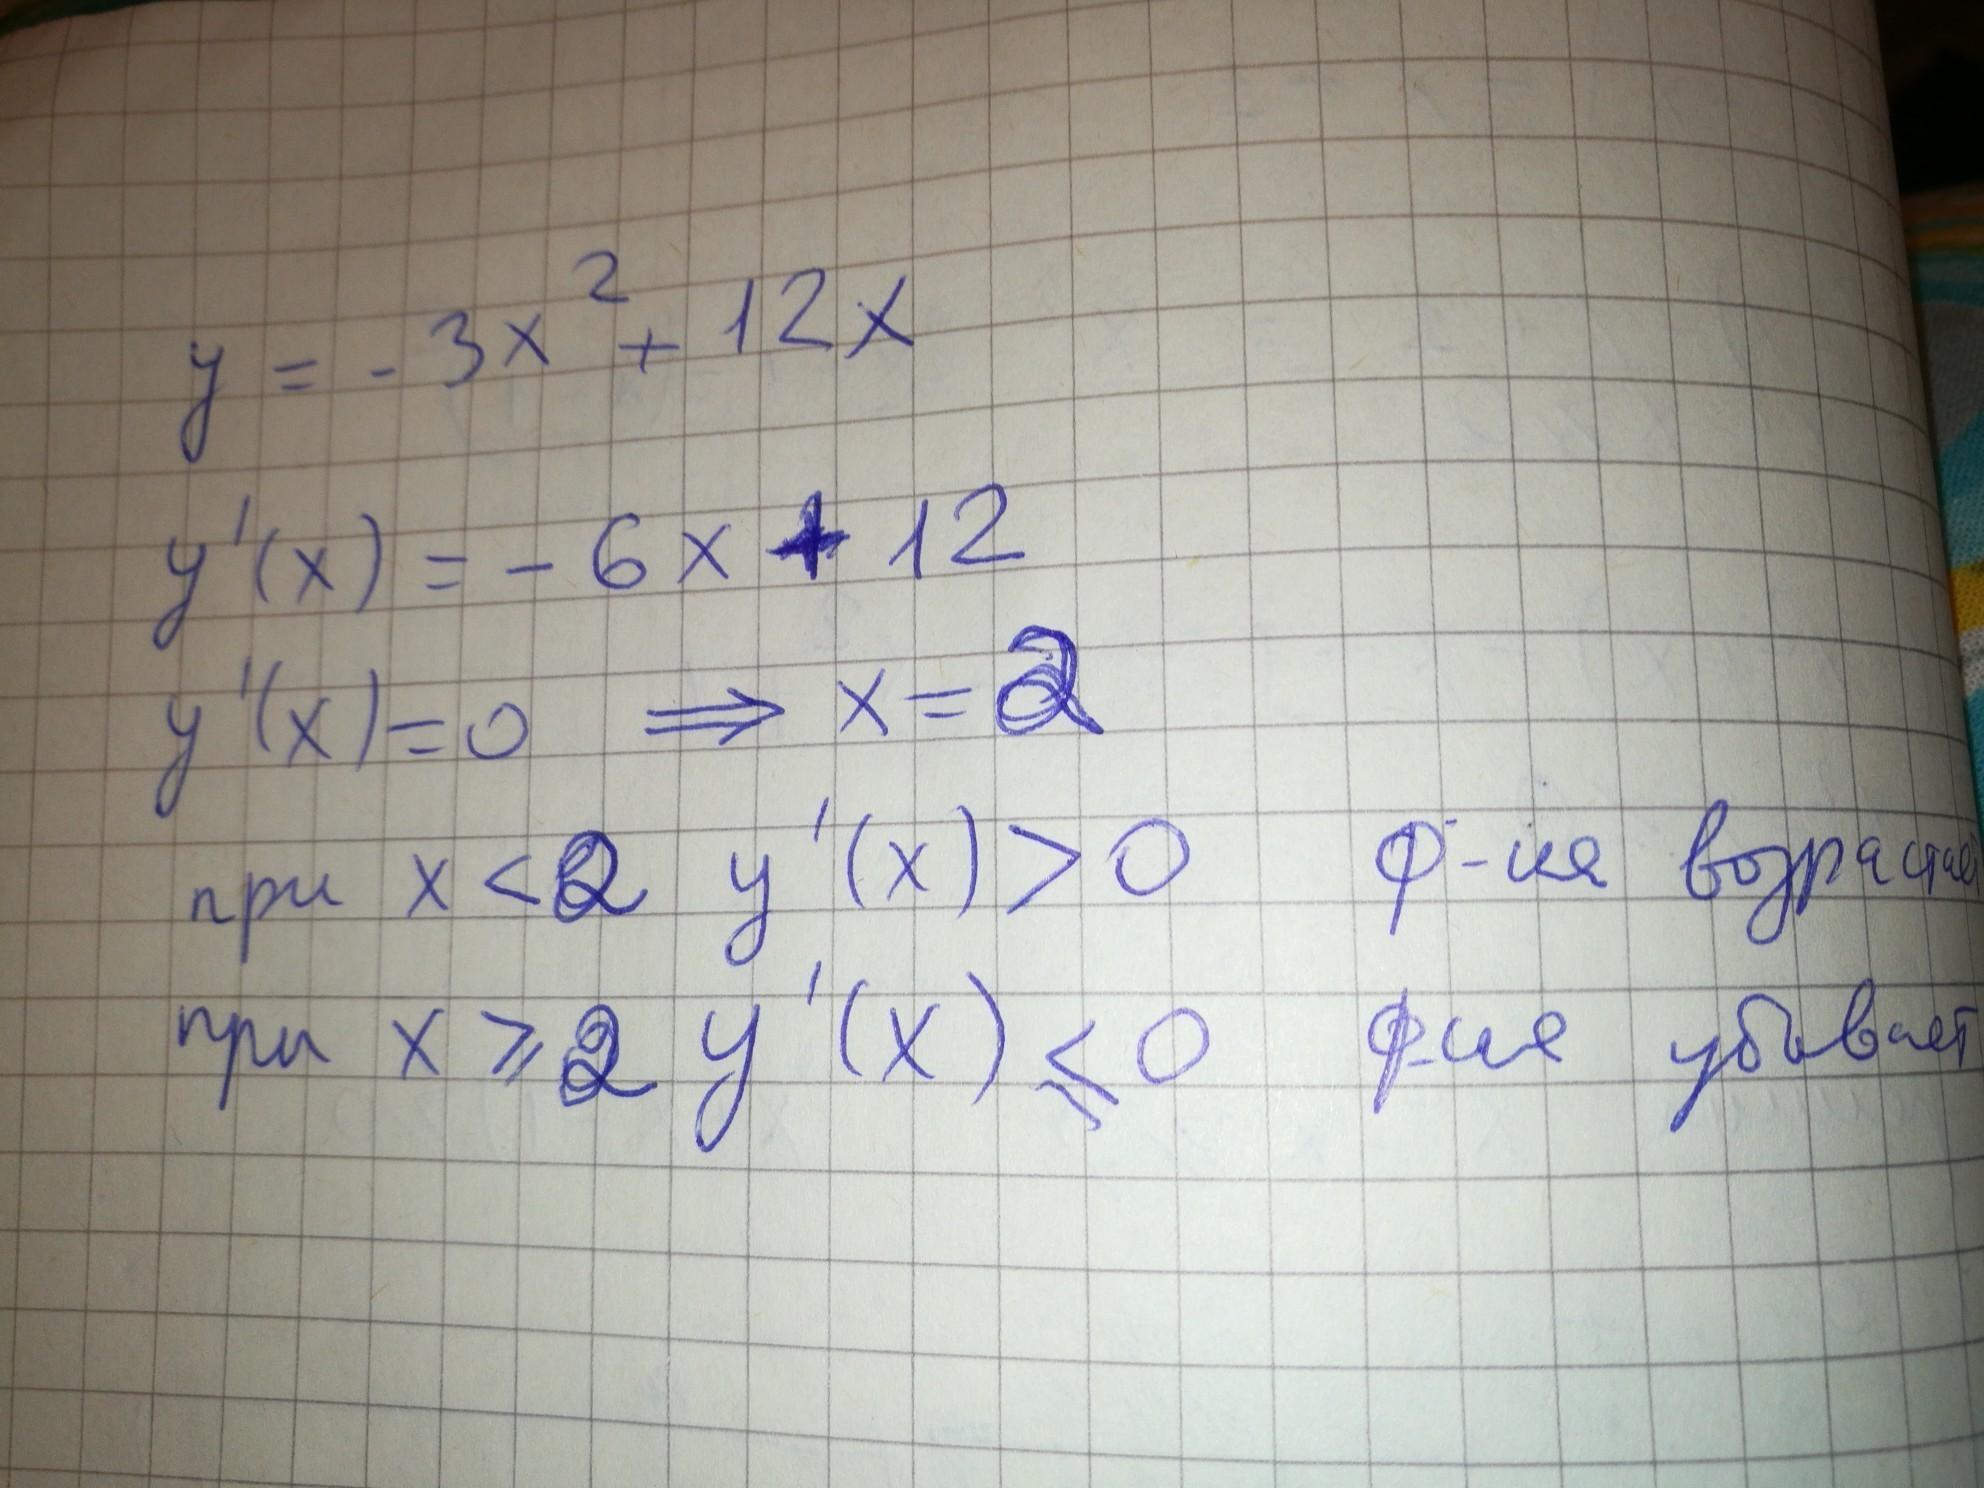 y = - 3x² + 12x
y'(x) = - 6x + 12
y'(x) = 0 ⟹ x = 2
при x < 2 y'(x) > 0 ф-ия возрастает
при x ⩾ 2 y'(x) ⩽ 0 ф-ия убывает